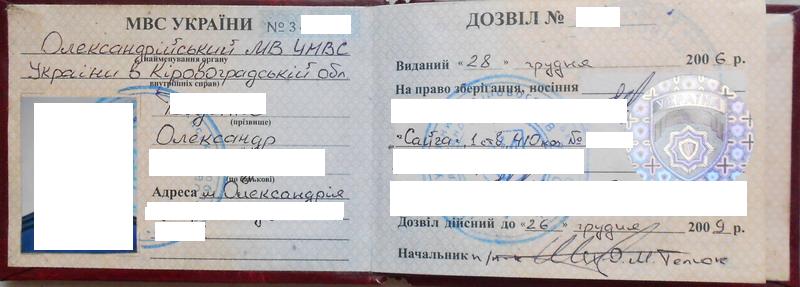 МВС УКРАЇНИ № 3
Олександрійський МВ УМВС
(Найменування органу
України в Кіровоградській обл
внутрішніх справ)
(прізвище)
Олександр
(по батькові)
Адреса м. Олександрія
ДОЗВІЛ №
Виданий «28» грудня 2006 р.
На право зберігання, носіння
"Сайга"
УКРАЇНА
Дозвіл дійсний до «26» грудня 2009 р.
Начальник